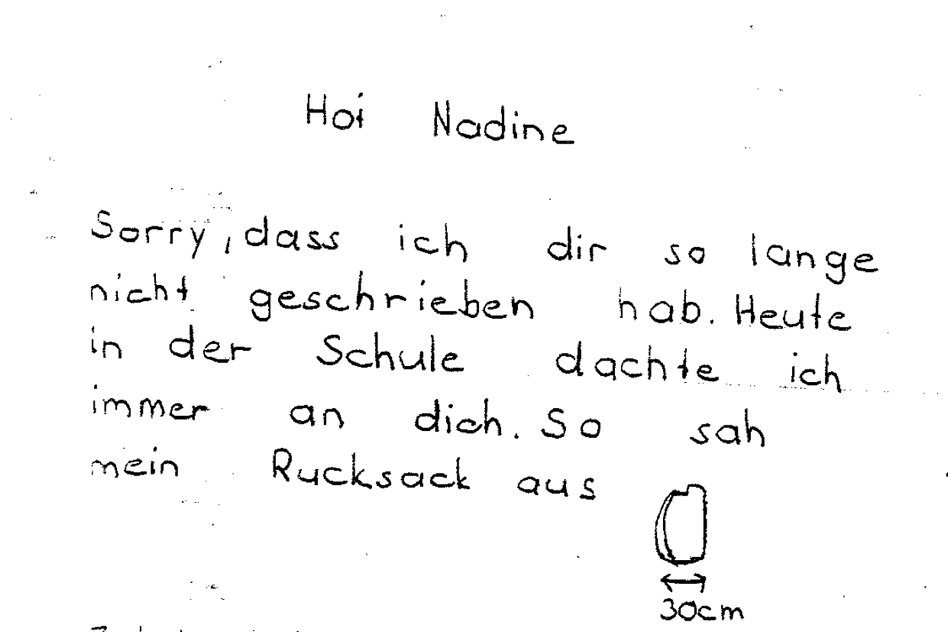 Hoi Nadine
Sorry, dass ich dir so lange
nicht geschrieben hab. Heute
in der Schule dachte ich
immer an dich. So sah
mein Rucksack aus
30cm